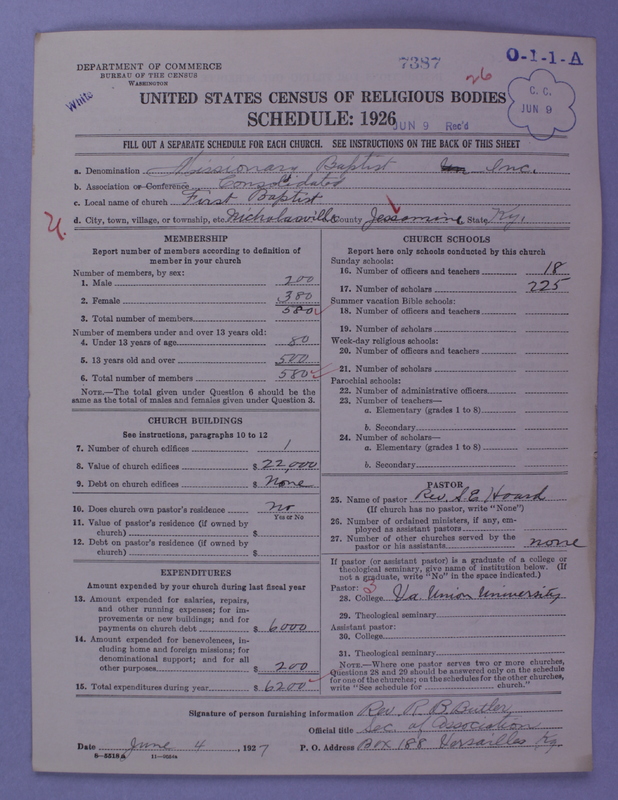 DEPARTMENT OF COMMERCE
BUREAU OF THE CENSUS
WASHINGTON
7387
26
O-1-1-A
White
C. C.
JUN 9
UNITED STATES CENSUS OF RELIGIOUS BODIES
SCHEDULE: 1926
JUN 9 Rec'd
FILL OUT A SEPARATE SCHEDULE FOR EACH CHURCH. SEE INSTRUCTIONS ON THE BACK OF THIS SHEET
a. Denomination Missionary Baptist Inc.
b. Association or Conference Consolidated
c. Local name of church First Baptist
d. City, town, village, or township, etc. Nicholasville County Jessamine State Ky.
MEMBERSHIP
Report number of members according to definition of
member in your church
Number of members, by sex:
1. Male 200
2. Female 380
3. Total number of members 580
Number of members under and over 13 years old:
4. Under 13 years of age 80
5. 13 years old and over 500
6. Total number of members 580
NOTE.—The total given under Question 6 should be the
same as the total of males and females given under Question 3.
CHURCH BUILDINGS
See instructions, paragraphs 10 to 12
7. Number of church edifices 1
8. Value of church edifices $ 22,000
9. Debt on church edifices $ None
10. Does church own pastor's residence? no
Yes or No
11. Value of pastor's residence (if owned by
church) $
12. Debt on pastor's residence (if owned by
church) $
EXPENDITURES
Amount expended by your church during last fiscal year
13. Amount expended for salaries, repairs,
and other running expenses; for im-
provements or new buildings; and for
payments on church debt $ 6000
14. Amount expended for benevolences, in-
cluding home and foreign missions; for
denominational support; and for all
other purposes $ 200
15. Total expenditures during year $ 6200
CHURCH SCHOOLS
Report here only schools conducted by this church
Sunday schools:
16. Number of officers and teachers 18
17. Number of scholars 225
Summer vacation Bible schools:
18. Number of officers and teachers
19. Number of scholars
Week-day religious schools:
20. Number of officers and teachers
21. Number of scholars
Parochial schools:
22. Number of administrative officers
23. Number of teachers—
a. Elementary (grades 1 to 8)
b. Secondary
24. Number of scholars—
a. Elementary (grades 1 to 8)
b. Secondary
PASTOR
25. Name of pastor Rev. S. E. Hoard
(If church has no pastor, write "None")
26. Number of ordained ministers, if any, em-
ployed as assistant pastors
27. Number of other churches served by the
pastor or his assistants none
If pastor (or assistant pastor) is a graduate of a college or
theological seminary, give name of institution below. (If
not a graduate, write "No" in the space indicated.)
Pastor: 3
28. College Va. Union University
29. Theological seminary
Assistant pastor:
30. College
31. Theological seminary
NOTE.—Where one pastor serves two or more churches,
Questions 28 and 29 should be answered only on the schedule
for one of the churches; on the schedules for the other churches,
write "See schedule for church."
Signature of person furnishing information Rev. R. B. Butler
Official title Sec. of Association
Date June 4, 1927 P. O. Address Box 188 Versailles Ky
8-5518A 11-9024a